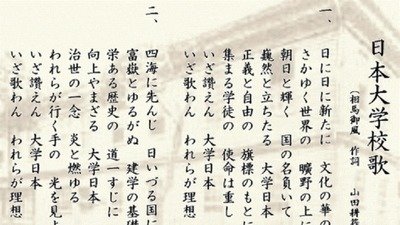 日本大学校歌
〔相馬御風 作詞 山田耕
一、日に日に新たに 文化の華の
さかゆく世界の 曠野の上に
朝日と輝く 国の名負いて
巍然と立ちたる 大学日本
正義と自由の 旗標のもとに
集まる学徒の 使命は重し
いざ讃えん 大学日本
いざ歌わん われらが理想
二、四海に先んじ 日いづる国に
富嶽とゆるがぬ 建学の基礎
栄ある歴史の 道一すじに
向上やまざる 大学日本
治世の一念 炎と燃ゆる
われらが行く手の 光を見よ
いざ讃えん 大学日本
いざ歌わん われらが理想